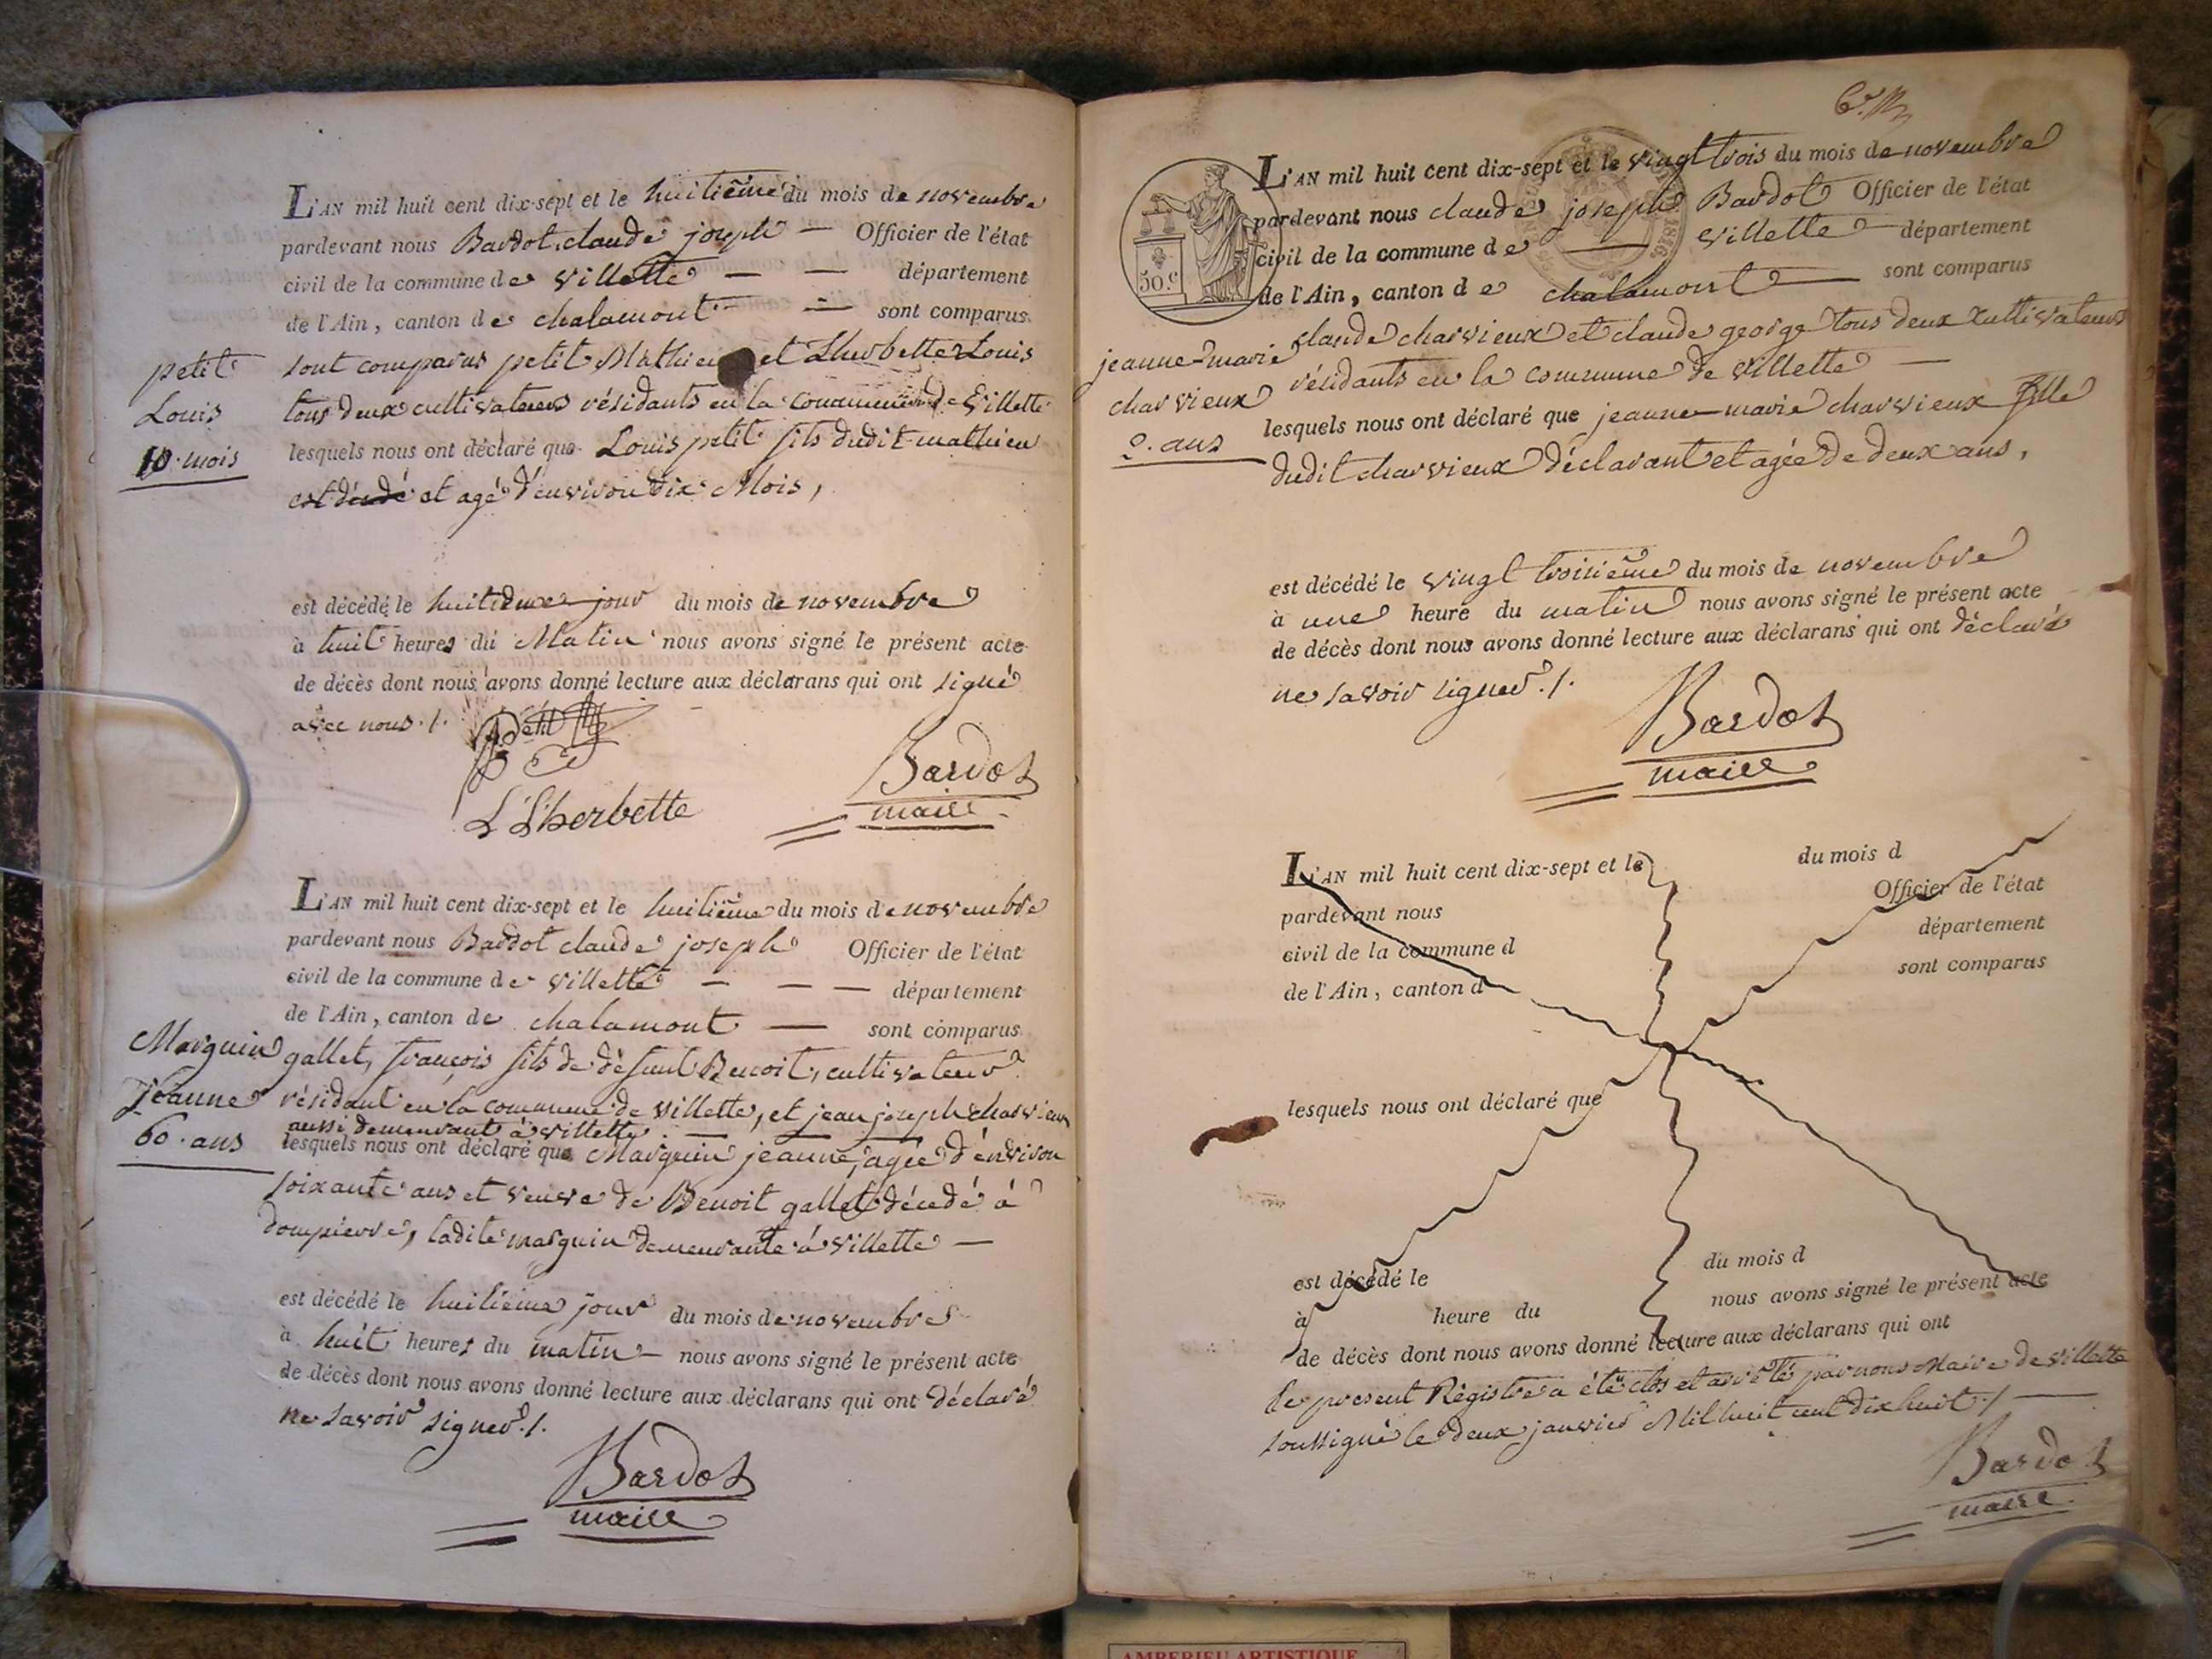 L'AN mil huit cent dix-sept et le huitiême du mois de novembre
pardevant nous Bardot, claude joseph — Officier de l'état
civil de la commune de villette — — département
de l'Ain, canton de chalamont — — sont comparus
petit
Louis
10. mois
sont comparus petit Mathieu et Lherbette Louis
tous deux cultivateurs résidants en la commune de Villette
lesquels nous ont déclaré que Louis petit fils dudit mathieu
et agé d'environ dix Mois,
est décédé le huitieme jour du mois de novembre
à huit heures du Matin nous avons signé le présent acte
de décès dont nous avons donné lecture aux déclarans qui ont signé
avec nous ./.
Petit
Bardot
maire
L Lherbette
L'AN mil huit cent dix-sept et le huitiême du mois de novembre
pardevant nous Bardot claude joseph Officier de l'état
civil de la commune de villette — — — département
de l'Ain, canton de chalamont — sont comparus
Marguin
jeanne
60. ans
gallet, françois fils de défunt Benoit, cultivateur
résidant en la commune de villette, et jean joseph charvieux
aussi demeurant à villette. —
lesquels nous ont déclaré que Marguin jeanne, agée d'environ
soixante ans et veuve de Benoit gallet décedé à
dompierre, ladite marguin demeurante à villette —
est décédé le huitième jour du mois de novembre
à huit heures du matin — nous avons signé le présent acte
de décès dont nous avons donné lecture aux déclarans qui ont déclaré
ne savoir signer ./.
Bardot
maire
50.c
1816
L'AN mil huit cent dix-sept et le vingt trois du mois de novembre
pardevant nous claude joseph Bardot Officier de l'état
civil de la commune de — villette — département
de l'Ain, canton de chalamont — sont comparus
jeanne-marie
charvieux
2. ans
claude charvieux et claude george tous deux cultivateurs
résidants en la commune de villette —
lesquels nous ont déclaré que jeanne-marie charvieux fille
dudit charvieux déclarant et agée de deux ans,
est décédé le vingt troisième du mois de novembre
à une heure du matin nous avons signé le présent acte
de décès dont nous avons donné lecture aux déclarans qui ont déclaré
ne savoir signer ./.
Bardot
maire
L'AN mil huit cent dix-sept et le du mois d
pardevant nous Officier de l'état
civil de la commune d département
de l'Ain, canton d sont comparus
lesquels nous ont déclaré que
est décédé le du mois d
à heure du nous avons signé le présent acte
de décès dont nous avons donné lecture aux déclarans qui ont
le present Régistre a été clos et arrêté par nous Maire de villette
soussigné le deux janvier Mil huit cent dix huit ./. —
Bardot
maire
AMBERIEU ARTISTIQUE